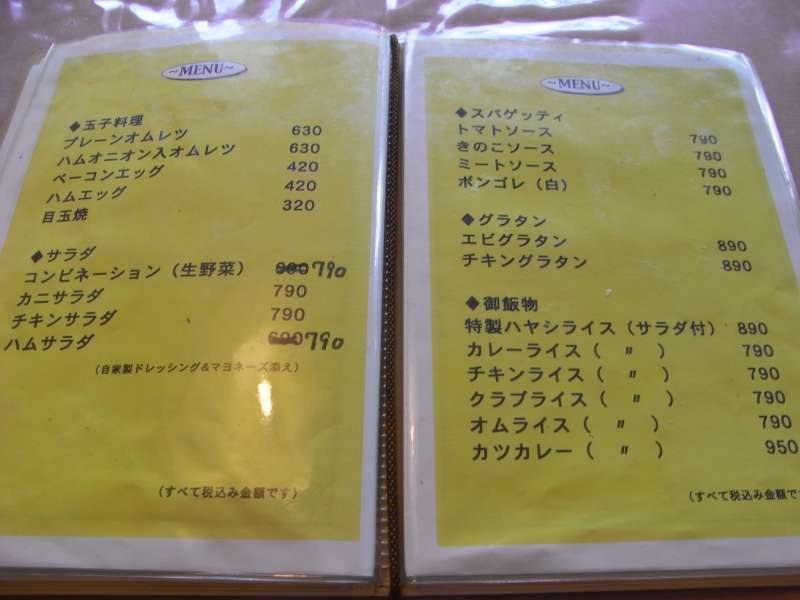 ~MENU~
◆玉子料理
プレーンオムレツ 630
ハムオニオン入オムレツ 630
ベーコンエッグ 420
ハムエッグ 420
目玉焼 320
◆サラダ
コンビネーション（生野菜） 790
カニサラダ 790
チキンサラダ 790
ハムサラダ 790
（自家製ドレッシング&マヨネーズ添え）
（すべて税込み金額です）
~MENU~
◆スパゲッティ
トマトソース 790
きのこソース 790
ミートソース 790
ボンゴレ（白） 790
◆グラタン
エビグラタン 890
チキングラタン 890
◆御飯物
特製ハヤシライス（サラダ付） 890
カレーライス（ 〃 ） 790
チキンライス（ 〃 ） 790
クラブライス（ 〃 ） 790
オムライス（ 〃 ） 790
カツカレー（ 〃 ） 950
（すべて税込み金額で